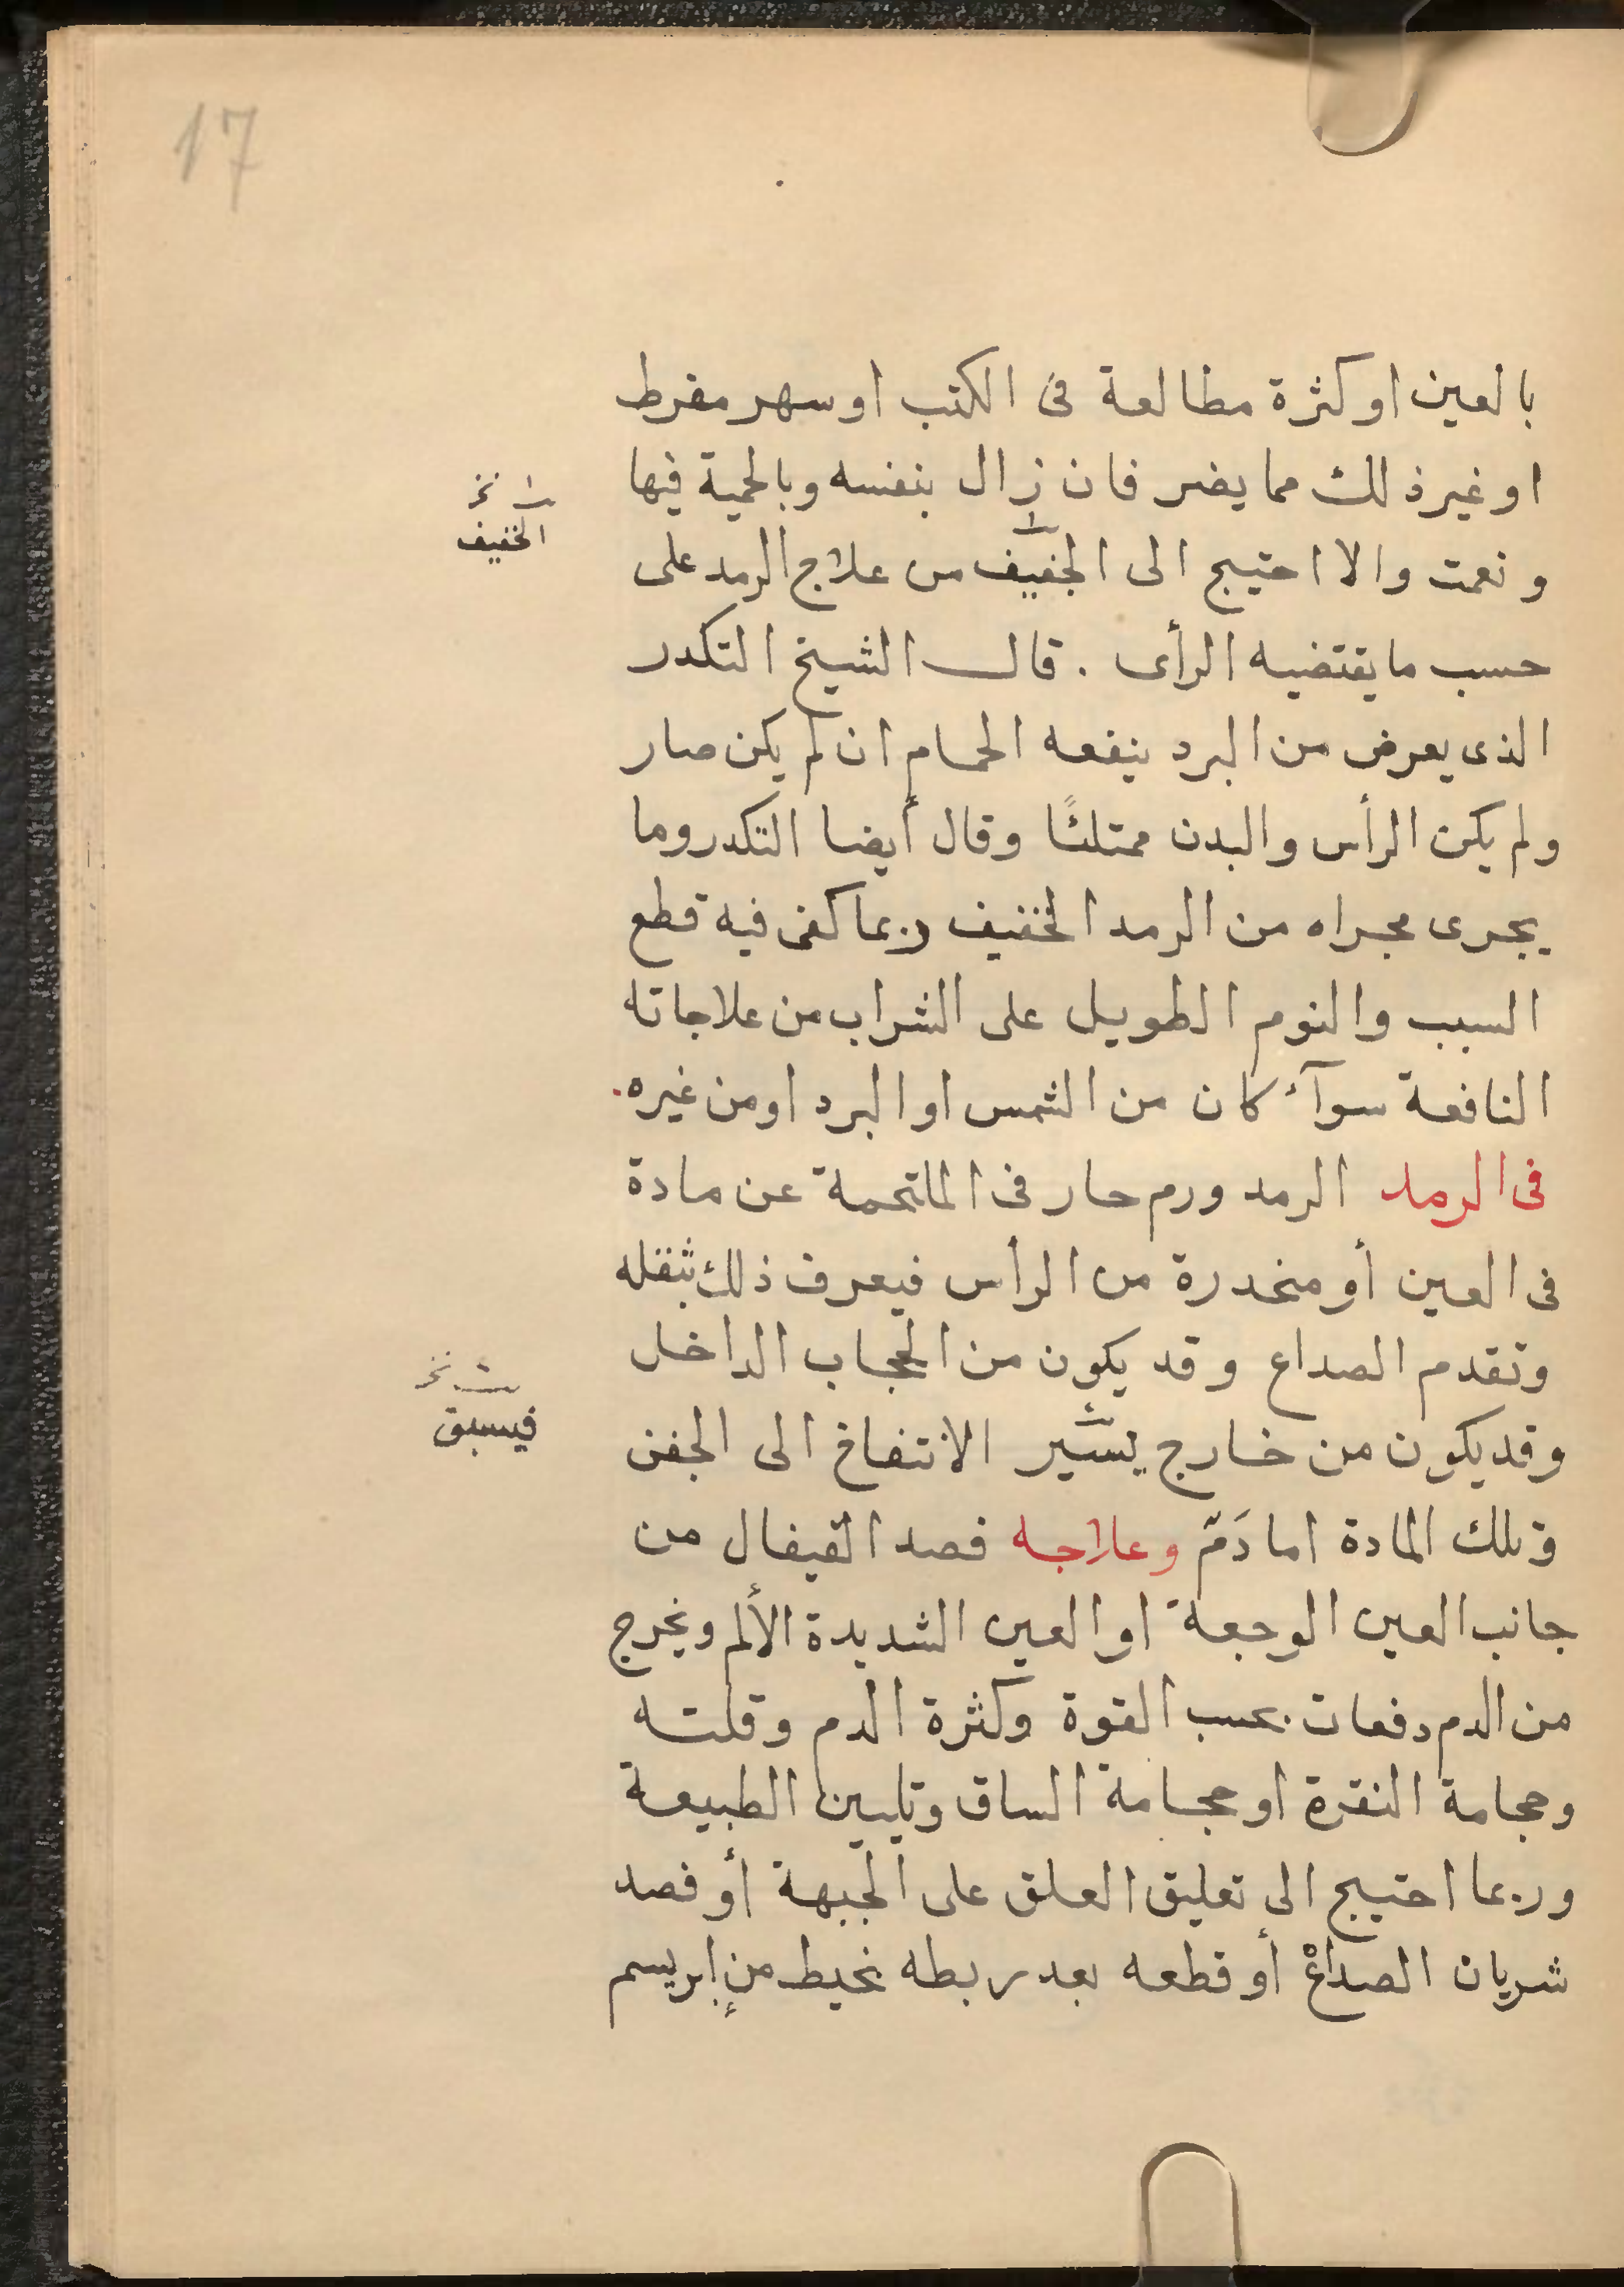 17
بالعين او كثرة مطالعة فى الكتب او سهر مفرط
او غير ذلك مما يضر فان زال بنفسه وبالحمية فبها
ونعمت والا احتيج الى الجفيف من علاج الرمد على
ث نخ
الخفيف
حسب ما يقتضيه الرأى . قال الشيخ التكدر
الذى يعرض من البرد ينفعه الحمام ان لم يكن صار
ولم يكن الرأس والبدن ممتلئًا وقال أيضا التكدر وما
يجرى مجراه من الرمد الخفيف ربما كفى فيه قطع
السبب والنوم الطويل على الشراب من علاجاته
النافعة سوآء كان من الشمس او البرد او من غيره.
فى الرمد الرمد ورم حار فى الملتحمة عن مادة
فى العين أو منحدرة من الرأس فيعرف ذلك بثقله
وتقدم الصداع وقد يكون من الحجاب الداخل
وقد يكون من خارج يسير الانتفاخ الى الجفن
ث نخ
فيسبق
وتلك المادة اما دَمّ وعلاجه فصد القيفال من
جانب العين الوجعة او العين الشديدة الألم ويخرج
من الدم دفعات بحسب القوة وكثرة الدم وقلته
وحجامة النقرة او حجامة الساق وتليين الطبيعة
وربما احتيج الى تعليق العلق على الجبهة أو فصد
شريان الصداغ أو قطعه بعد ربطه بخيط من إبريسم